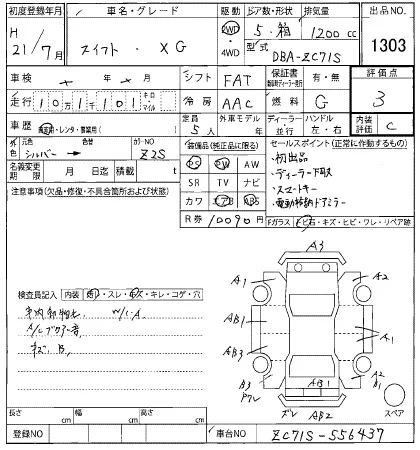 初度登録年月
車名・グレード
駆動
ドア数・形状
排気量
出品NO
H
21/7月
スイフト・XG
2WD
・
4WD
5・箱
1200cc
型式
DBA-ZC71S
1303
車検
年 月
シフト
FAT
保証書
有・無
評価点
走行
10万1千101
キロ
マイル
冷房
AAC
燃料
G
3
車歴
自家用・レンタ・事業用
定員
5人
外車モデル
年
ディーラー
並行
ハンドル
左・右
内装
評価
C
外色
元色
シルバー
色替
カラーNO
Z2S
装備品(純正品に限る)
セールスポイント(正常に動作するもの)
名義変更
期限
月 日迄
積載
t
PS
PW
・初出品
・ディーラー下取
・スマートキー
・電動格納ドアミラー
SR
TV
ナビ
注意事項(欠品・修復・不具合箇所および状態)
カワ
エアB
ABS
R券
10090円
Fガラス
ビ石・キズ・ヒビ・ワレ・リペア跡
検査員記入
内装
・スレ・キズ・キレ・コゲ・穴
W/C A
キズ B
A3
A1
A2
AB1
A1
AB3
A2
B1
B3
AB1
ズレ
AB2
スペア
長さ
cm
幅
cm
高さ
cm
登録NO
車台NO
ZC71S-556437